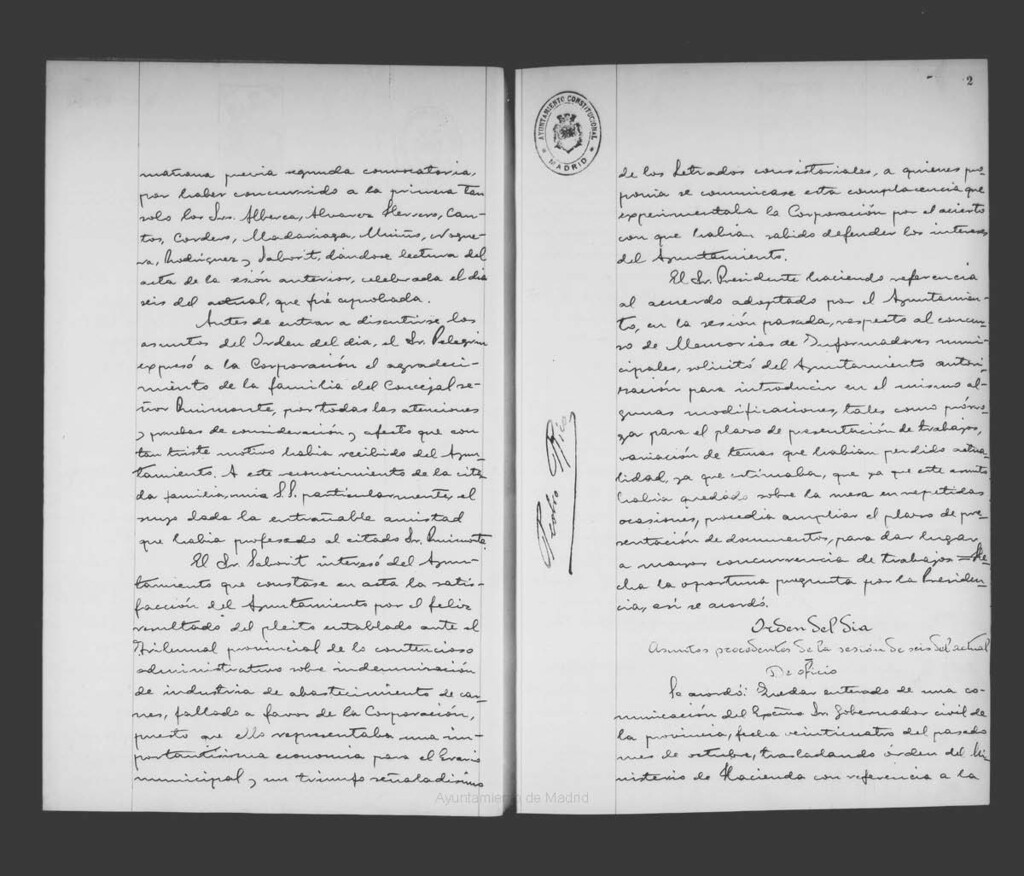 mañana previa segunda convocatoria,
por haber concurrido a la primera tan
solo los Sres. Alberca, Alvarez Herrero, Can-
tos, Cordero, Madariaga, Muiño, Nogue-
ra, Rodriguez y Saborit, dándose lectura del
acta de la sesión anterior, celebrada el dia
seis del actual, que fué aprobada.
Antes de entrar a discutirse los
asuntos del Orden del dia, el Sr. Pelegrin
expresó a la Corporación el agradeci-
miento de la familia del Concejal se-
ñor por todas las atenciones
y pruebas de consideración y afecto que con
tan triste motivo habia recibido del Ayun-
tamiento. A este reconocimiento de la cita
da familia, unia S.S. particularmente, el
suyo dada la entrañable amistad
que habia profesado al citado Sr.
El Sr. Saborit interesó del Ayun-
tamiento que constase en acta la satis-
facción del Ayuntamiento por el feliz
resultado del pleito entablado ante el
Tribunal provincial de lo contencioso
administrativo sobre indemnización
de industria de abastecimiento de car-
nes, fallado a favor de la Corporación,
puesto que ello representaba una im-
portantísima economia para el Erario
municipal y un triunfo señaladísimo
AYUNTAMIENTO CONSTITUCIONAL
MADRID
2
de los Letrados consistoriales, a quienes pro-
ponia se comunicase esta complacencia que
experimentaba la Corporación por el acierto
con que habian sabido defender los intereses
del Ayuntamiento.
El Sr. Presidente haciendo referencia
al acuerdo adoptado por el Ayuntamien-
to, en la sesión pasada, respecto al concur-
so de Memorias de Informadores muni-
cipales, solicitó del Ayuntamiento autori-
zación para introducir en el mismo al-
gunas modificaciones, tales como prórro-
ga para el plazo de presentación de trabajos,
variación de temas que habian perdido actua-
lidad, ya que estimaba, que ya que este asunto
habia quedado sobre la mesa en repetidas
ocasiones, procedia ampliar el plazo de pre-
sentación de documentos, para dar lugar
a mayor concurrencia de trabajos = He-
cha la oportuna pregunta por la Presiden-
cia, así se acordó.
Orden del dia
Asuntos procedentes de la sesión de seis del actual
De oficio
Se acordó: Quedar enterado de una co-
municación del Excmo Sr. Gobernador civil de
la provincia, fecha veinticuatro del pasado
mes de octubre, trasladando órden del Mi-
nisterio de Hacienda con referencia a la
Ayuntamiento de Madrid